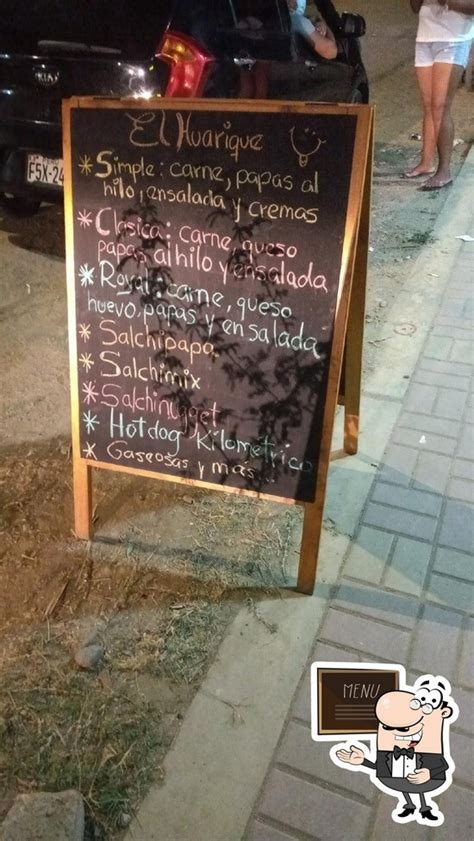 KIA
F5X-24
El Huarique
* Simple: carne, papas al
hilo, ensalada y cremas
* Clasica: carne, queso
papas al hilo y ensalada
* Royal: carne, queso
huevo, papas y ensalada
* Salchipapa
* Salchimix
* Salchinugget
* Hotdog Kilometrico
* Gaseosas y mas...
MENU